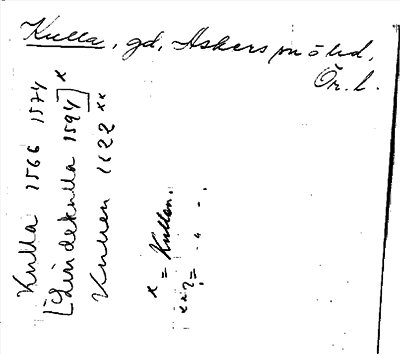 Kulla, gd, Askers sn o hd,
Ör. l.
Kulla 1566 1574
[Lindekulla 1594] x
Kullen 1622 xx
x = Kullen.
xx ? = - " - .